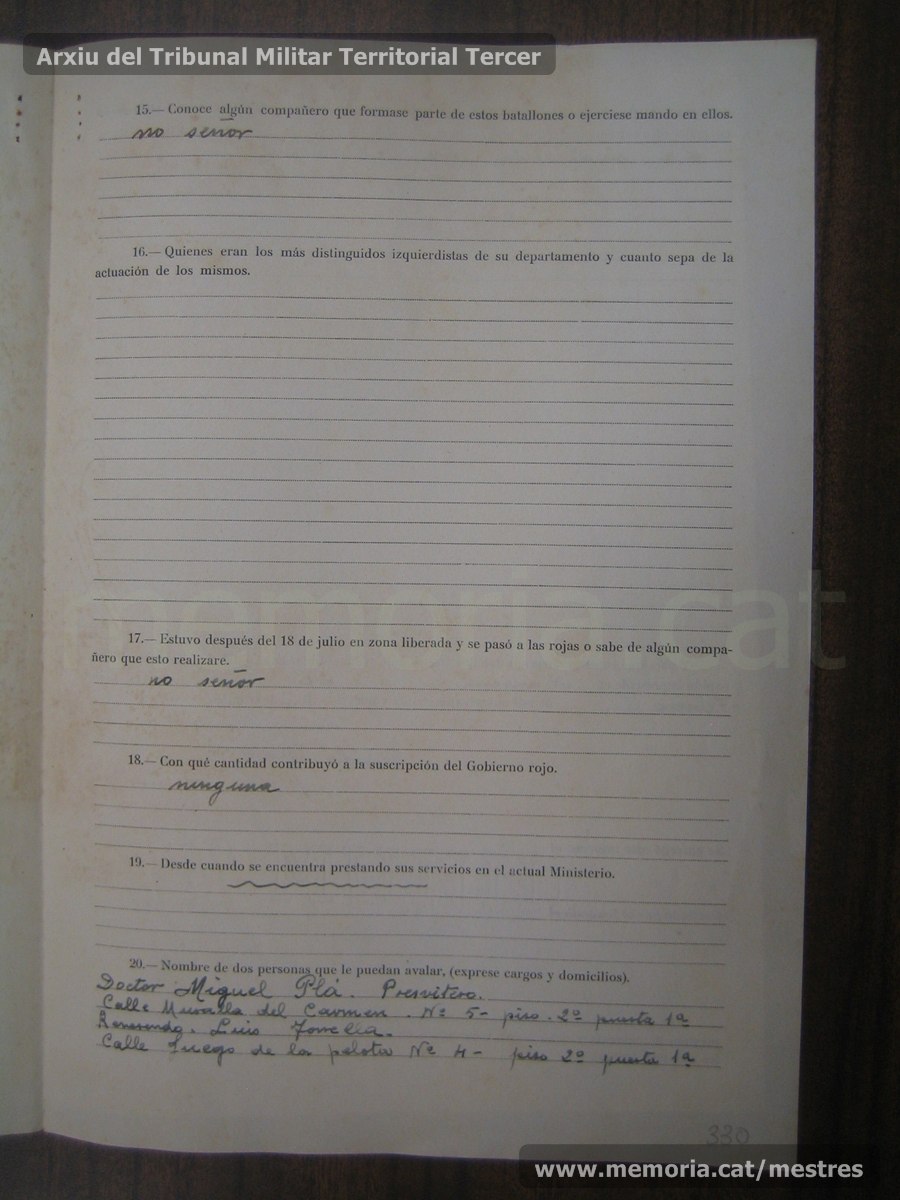 Arxiu del Tribunal Militar Territorial Tercer
15.— Conoce algún compañero que formase parte de estos batallones o ejerciese mando en ellos.
no señor
16.— Quienes eran los más distinguidos izquierdistas de su departamento y cuanto sepa de la
actuación de los mismos.
memoria.cat
17.— Estuvo después del 18 de julio en zona liberada y se pasó a las rojas o sabe de algún compa-
ñero que esto realizare.
no señor
18.— Con qué cantidad contribuyó a la suscripción del Gobierno rojo.
ninguna
19.— Desde cuando se encuentra prestando sus servicios en el actual Ministerio.
20.— Nombre de dos personas que le puedan avalar, (exprese cargos y domicilios).
Doctor Miguel Plá. Presvitero.
Calle Muralla del Carmen. Nº 5- piso. 2º puerta 1ª
Reverendo. Luis
Calle Juego de la pelota Nº 4- piso 2º puerta 1ª
330
www.memoria.cat/mestres